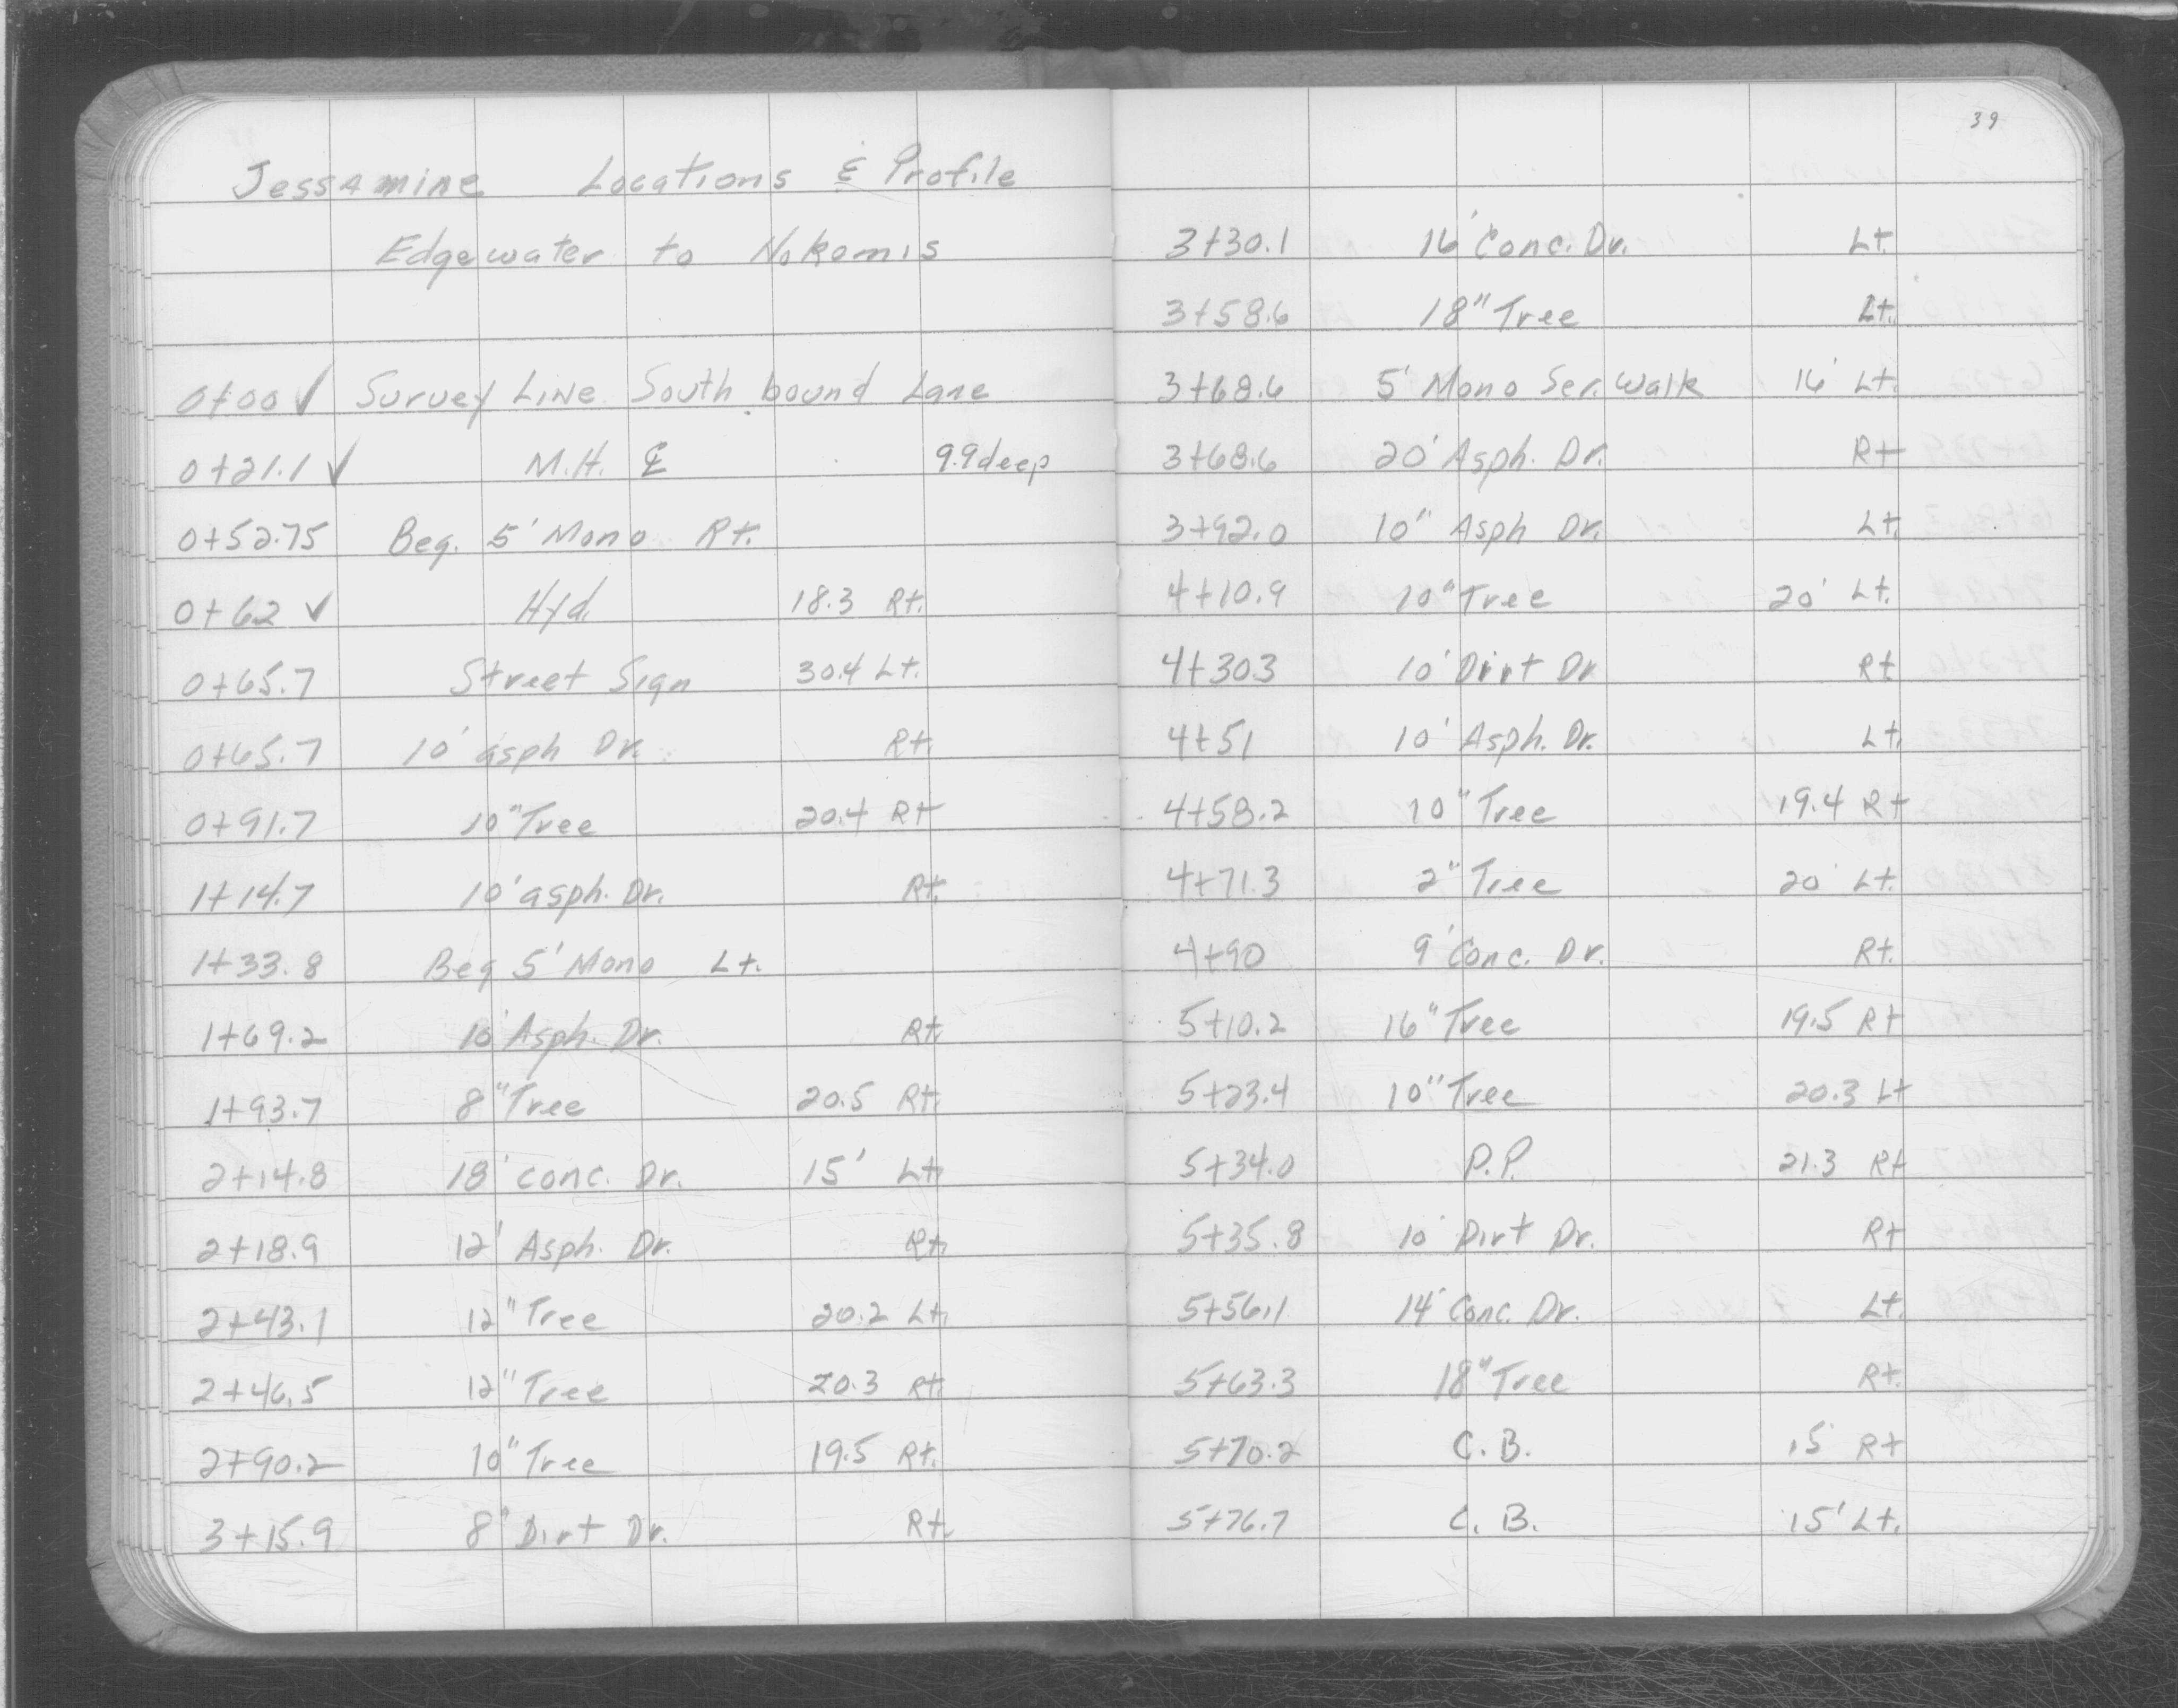 Jessamine Locations & Profile
Edgewater to Nokomis
0+00 ✓ Survey Line South bound Lane
0+21.1 ✓ M.H. ℄ 9.9 deep
0+52.75 Beg. 5' Mono Rt.
0+62 ✓ Hyd. 18.3 Rt.
0+65.7 Street Sign 30.4 Lt.
0+65.7 10' asph Dr. Rt.
0+91.7 10" Tree 20.4 Rt
1+14.7 10' asph. Dr. Rt.
1+33.8 Beg 5' Mono Lt.
1+69.2 10' Asph. Dr. Rt.
1+93.7 8" Tree 20.5 Rt.
2+14.8 18' conc. Dr. 15' Lt.
2+18.9 12' Asph. Dr. Rt.
2+43.1 12" Tree 20.2 Lt.
2+46.5 12" Tree 20.3 Rt.
2+90.2 10" Tree 19.5 Rt.
3+15.9 8" Dirt Dr. Rt.
39
3+30.1 16' Conc. Dr. Lt.
3+58.6 18" Tree Lt.
3+68.6 5' Mono Ser. Walk 16' Lt.
3+68.6 20' Asph. Dr. Rt
3+92.0 10" Asph Dr. Lt.
4+10.9 10" Tree 20' Lt.
4+30.3 10' Dirt Dr Rt
4+51 10' Asph. Dr. Lt.
4+58.2 10" Tree 19.4 Rt
4+71.3 2" Tree 20' Lt.
4+90 9' Conc. Dr. Rt.
5+10.2 16" Tree 19.5 Rt
5+23.4 10" Tree 20.3 Lt
5+34.0 P.P. 21.3 Rt
5+35.8 10' Dirt Dr. Rt
5+56.1 14' Conc. Dr. Lt.
5+63.3 18" Tree Rt.
5+70.2 C.B. 15' Rt
5+76.7 C.B. 15' Lt.